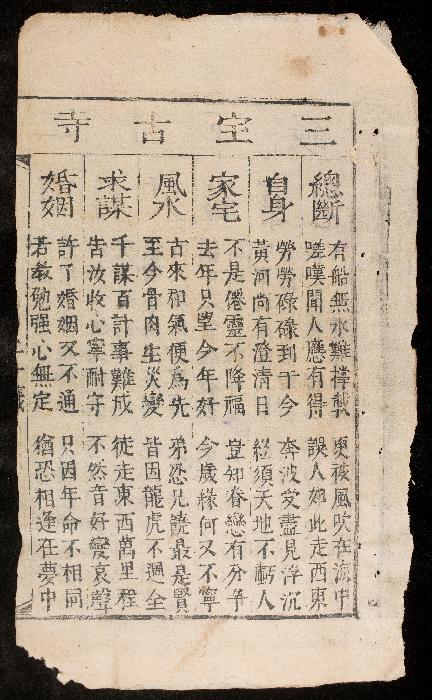 三宝古寺
總斷
有船無水難撐載 更被風吹在海中
嗟嘆聞人應有得 誤人如此走西東
自身
勞勞碌碌到于今 奔波受盡見浮沉
黃河尚有澄清日 須天地不虧人
家宅
不是僊靈不降福 豈知眷戀有分爭
去年只望今年好 今歲緣何又不寧
風水
古來和氣便爲先 弟恐兄饒最是賢
至今骨肉生災變 皆因龍虎不週全
求謀
千謀百計事難成 徒走東西萬里程
苦汝收心寧耐守 不然音好變哀聲
婚姻
許了婚姻又不通 只因年命不相同
若教勉強心無定 猶恐相逢在夢中